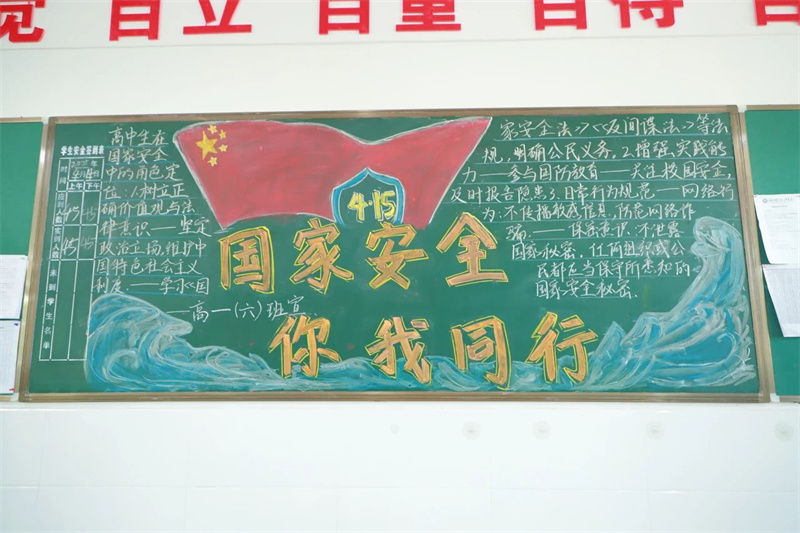 觉 自立 自重 自得 自
学生安全签到表
时间
2025年
4月14日
上午 下午
应到人数
45 45
实到人数
45 45
未到学生名单
高中生在
国家安全
中的角色定
位:1.树立正
确价值观与法
律意识——坚定
政治立场,维护中
国特色社会主义
制度.——学习《国
家安全法》《反间谍法》等法
规,明确公民义务。2.增强实践能
力——参与国防教育——关注校园安全,
及时报告隐患3.日常行为规范——网络行
为:不传播敏感信息,防范网络诈
骗.——保密意识:不泄露
国家秘密,任何组织或公
民都应当保守所悉知的
国家安全秘密.
4·15
国家安全
你我同行
——高一(六)班宣